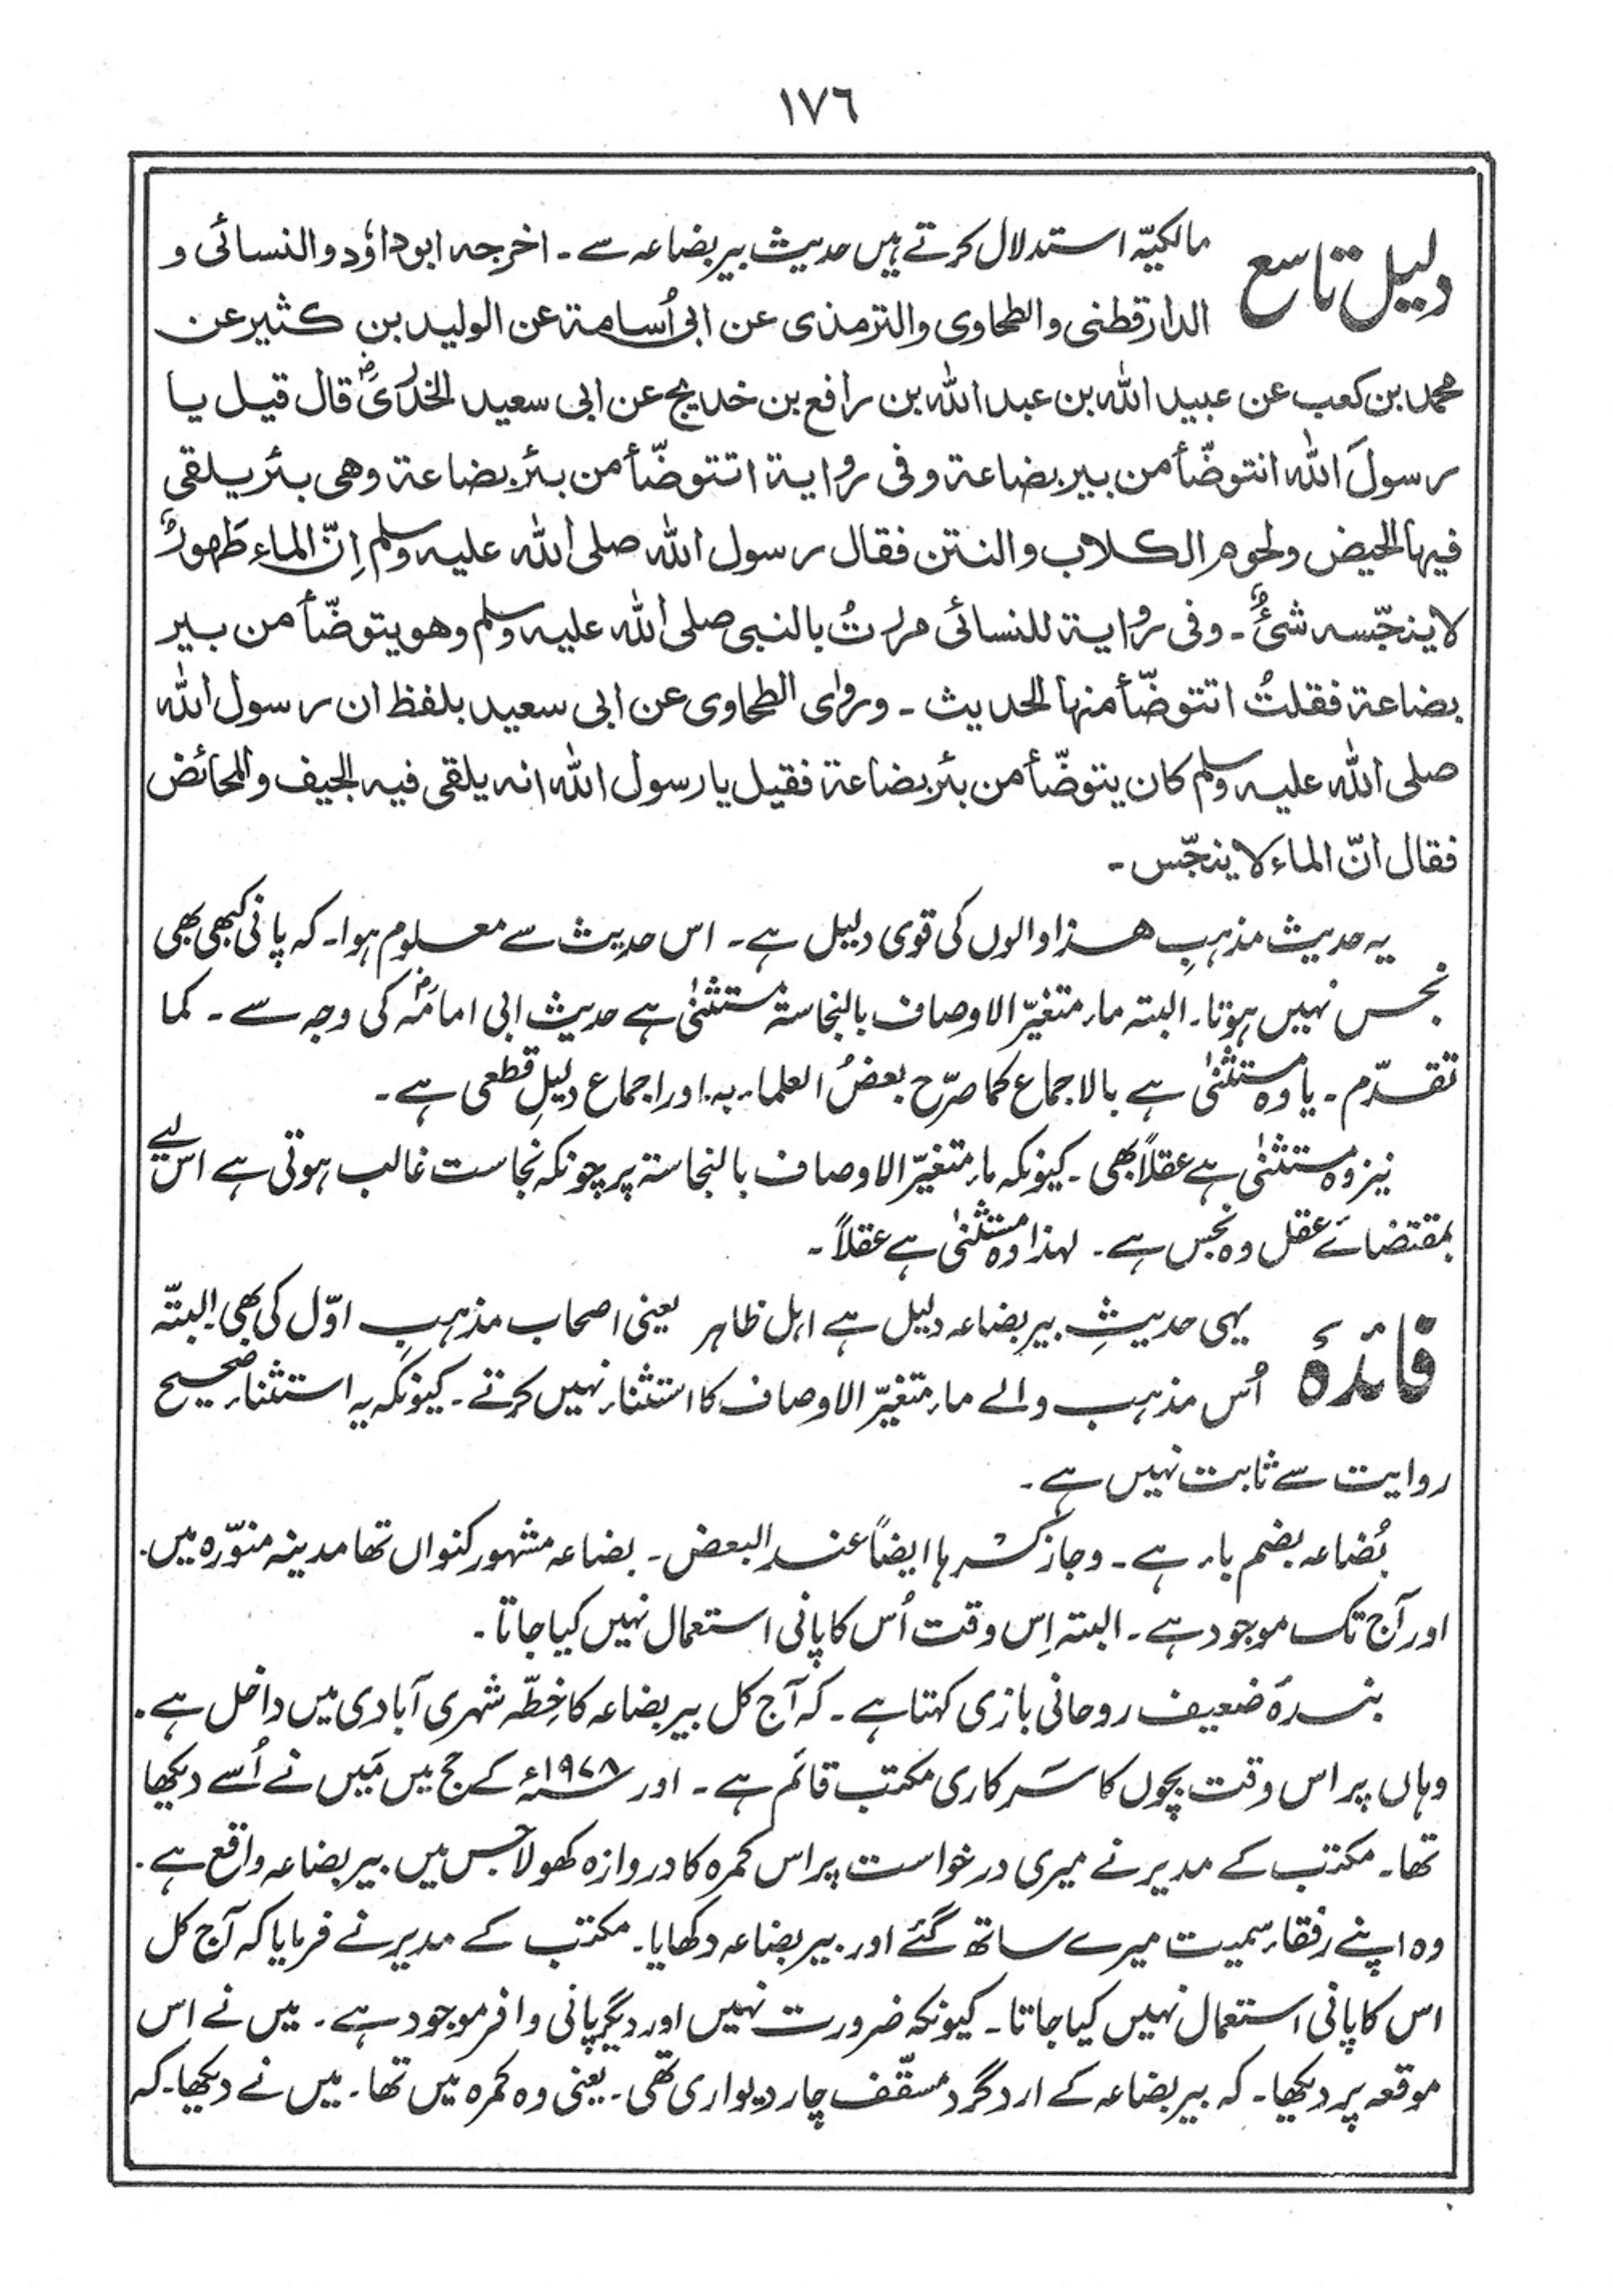 ١٧٦
دلیل تاسع مالکیّہ استدلال کرتے ہیں حدیث بیر بضاعہ سے ۔ اخرجہ ابوداؤد والنسائی و
الدارقطنی والطحاوی والترمذی عن ابی اُسامۃ عن الولید بن کثیر عن
محمد بن کعب عن عبید اللّٰہ بن عبد اللّٰہ بن رافع بن خدیج عن ابی سعید الخدریؓ قال قیل یا
رسولَ اللّٰہ انتوضّأ من بیر بضاعۃ وفی روایۃ اتتوضّأ من بئر بضاعۃ وھی بئر یلقی
فیھا الحیض ولحوم الکلاب والنتن فقال رسول اللّٰہ صلی اللّٰہ علیہ وسلم اِنّ الماء طَھورٌ
لاینجّسہ شیٌٔ ۔ وفی روایۃ للنسائی مررتُ بالنبی صلی اللّٰہ علیہ وسلم وھو یتوضّأ من بیر
بضاعۃ فقلتُ اتتوضّأ منھا الحدیث ۔ وروٰی الطحاوی عن ابی سعید بلفظ ان رسول اللّٰہ
صلی اللّٰہ علیہ وسلم کان یتوضّأ من بئر بضاعۃ فقیل یا رسول اللّٰہ انہ یلقی فیہ الجیف والمحائض
فقال انّ الماء لا ینجّس ۔
یہ حدیث مذہبِ ھذا والوں کی قوی دلیل ہے ۔ اس حدیث سے معلوم ہوا۔ کہ پانی کبھی بھی
نجس نہیں ہوتا۔ البتہ ماء متغیّر الاوصاف بالنجاسۃ مستثنیٰ ہے حدیث ابی امامہؓ کی وجہ سے ۔ کما
تقدّم ۔ یا وہ مستثنیٰ ہے بالاجماع کما صرّح بعضُ العلماء بہ۔ اور اجماع دلیلِ قطعی ہے ۔
نیز وہ مستثنیٰ ہے عقلاً بھی ۔ کیونکہ ماء متغیّر الاوصاف بالنجاسۃ پر چونکہ نجاست غالب ہوتی ہے اس لیے
بمقتضائے عقل وہ نجس ہے ۔ لہذا وہ مستثنیٰ ہے عقلاً ۔
فائدہ یہی حدیثِ بیر بضاعہ دلیل ہے اہل ظاہر یعنی اصحاب مذہبِ اوّل کی بھی۔ البتّہ
اُس مذہب والے ماء متغیّر الاوصاف کا استثناء نہیں کرتے ۔ کیونکہ یہ استثناء صحیح
روایت سے ثابت نہیں ہے ۔
بُضاعہ بضم باء ہے ۔ وجاز کسرہا ایضاً عند البعض ۔ بضاعہ مشہور کنواں تھا مدینہ منوّرہ میں ۔
اور آج تک موجود ہے ۔ البتہ اِس وقت اُس کا پانی استعمال نہیں کیا جاتا ۔
بندۂ ضعیف روحانی بازی کہتا ہے ۔ کہ آج کل بیر بضاعہ کا خِطّہ شہری آبادی میں داخل ہے ۔
وہاں پر اس وقت بچوں کا سَرکاری مکتب قائم ہے ۔ اور ۱۹۷۸ء کے حج میں مَیں نے اُسے دیکھا
تھا۔ مکتب کے مدیر نے میری درخواست پر اس کمرہ کا دروازہ کھولا جس میں بیر بضاعہ واقع ہے ۔
وہ اپنے رفقاء سمیت میرے ساتھ گئے اور بیر بضاعہ دکھایا۔ مکتب کے مدیر نے فرمایا کہ آج کل
اس کا پانی استعمال نہیں کیا جاتا ۔ کیونکہ ضرورت نہیں اور دیگر پانی وافر موجود ہے ۔ میں نے اس
موقعہ پر دیکھا۔ کہ بیر بضاعہ کے ارد گرد مسقّف چار دیواری تھی ۔ یعنی وہ کمرہ میں تھا ۔ میں نے دیکھا۔ کہ